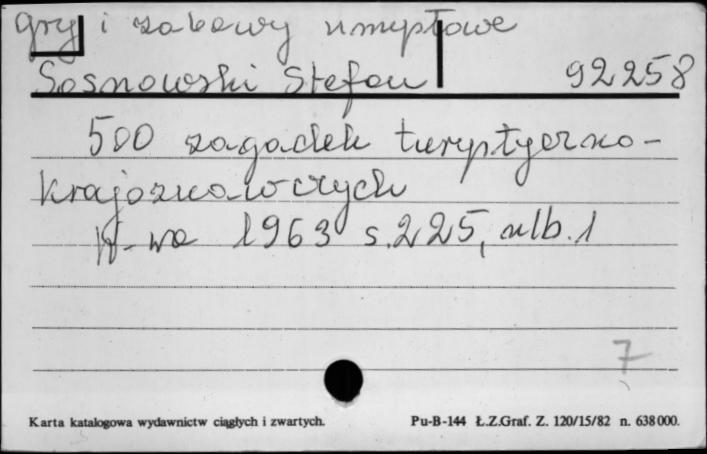 gry i zabawy umysłowe
Sosnowski Stefan 92258
500 zagadek turystyczno-
krajoznawczych
W-wa 1963 s.225, nlb.1
7
Karta katalogowa wydawnictw ciągłych i zwartych. Pu-B-144 Ł.Z.Graf. Z. 120/15/82 n. 638000.